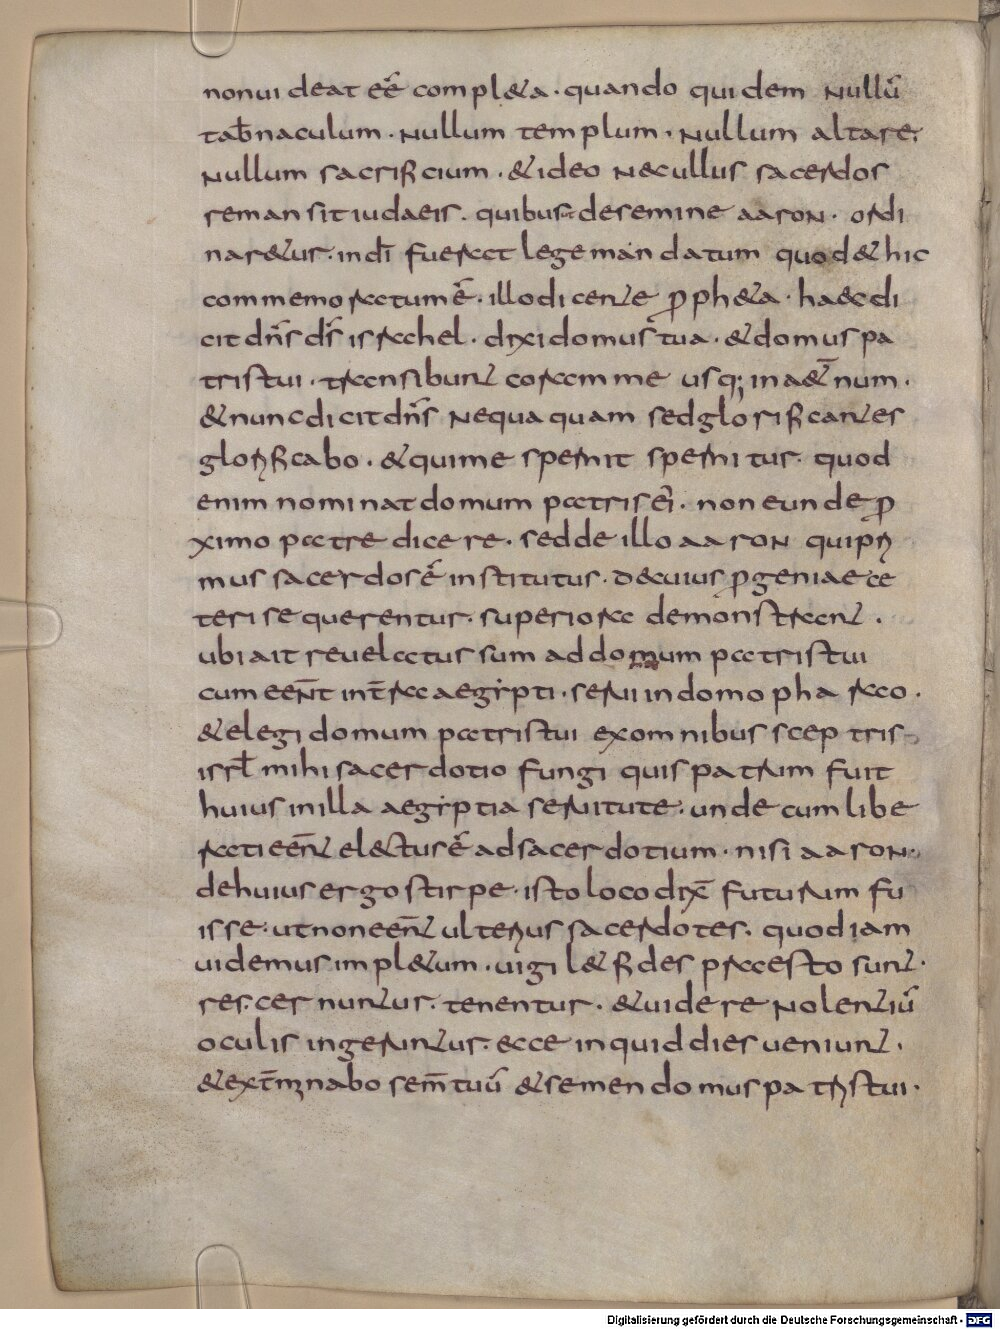 non uideat eē̄ compl&a · quando quidem nullū
tab̄naculum · nullum templum · nullum altare ·
nullum sacrificium · & ideo nec ullus sacerdos
remansit iudaeis · quibus de semine aaron · ordi
nar&ur · ind̄i fuerat lege mandatum quod & hic
commemoratum ē · illo dicente ꝓph&a · haec di
cit dn̄s ds̄ israhel · dixi domus tua · & domus pa
tris tui · transibunt coram me usq; in a&̄num ·
& nunc dicit dn̄s nequaquam sed glorificantes
glorificabo · & qui me spernit spernitur · quod
enim nominat domum patris ei · non eunde ꝓ
ximo patre dicere · sed de illo aaron qui pri
mus sacerdos ē institutus · de cuius ꝓgeniae ce
teri sequerentur · superiora demonstrant ·
ubi ait reuelatus sum ad domum patris tui
cum eēnt in t̄ra aegipti · serui in domo pharao ·
& elegi domum patris tui ex omnibus sceptris
isrl̄ mihi sacerdotio fungi quis patrum fuit
huius in illa aegiptia seruitute · unde cum libe
rati eēnt electus ē ad sacerdotium · nisi aaron ·
de huius ergo stirpe · isto loco dix̄ futurum fu
isse · ut non eēnt ulterius sacerdotes · quod iam
uidemus impl&um · uigil& fides praesto sunt ·
res · cernuntur · tenentur · & uidere nolentiū
oculis ingeruntur · ecce inquid dies ueniunt ·
& ext̄minabo sem̄ tuū & semen domus patris tui ·
Digitalisierung gefördert durch die Deutsche Forschungsgemeinschaft - DFG